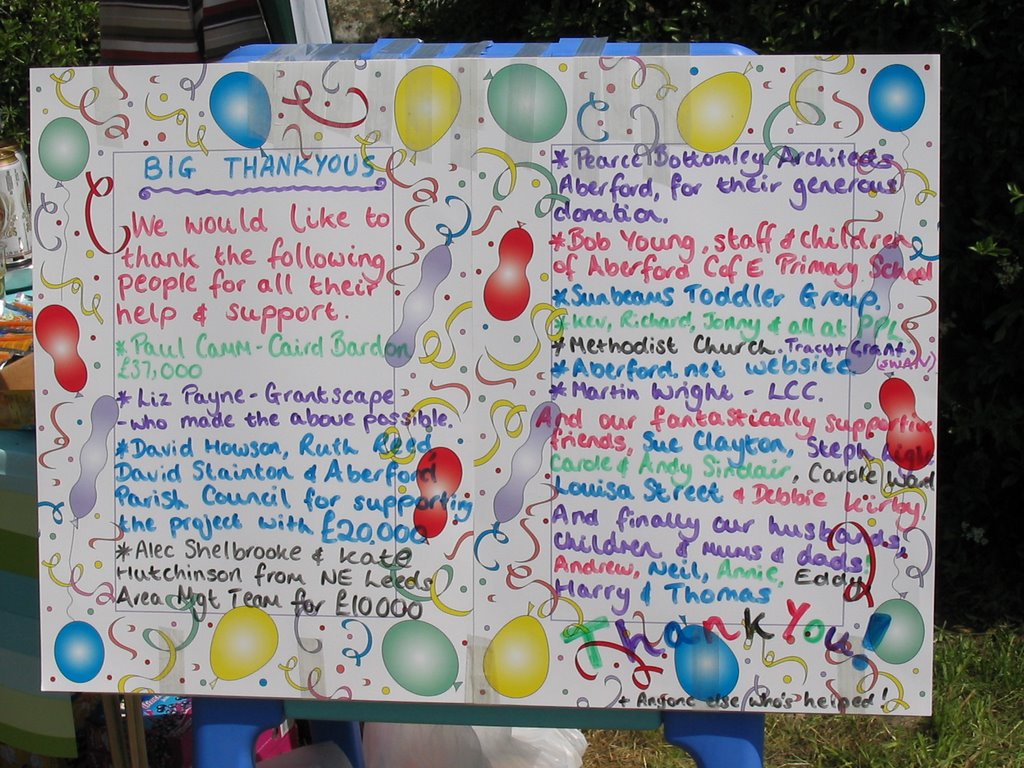 BIG THANKYOUS
We would like to
thank the following
people for all their
help & support.
*Paul Camm - Caird Bardon
£37,000
*Liz Payne - Grantscape
- who made the above possible.
*David Howson, Ruth Reed
David Stainton & Aberford
Parish Council for supporting
the project with £20,000
*Alec Shelbrooke & Kate
Hutchinson from NE Leeds
Area Mgt Team for £10000
*Pearce Bottomley Architects
Aberford, for their generous
donation.
*Bob Young, staff & children
of Aberford C of E Primary School
*Sunbeams Toddler Group.
*Kev, Richard, Jonny & all at PPL
*Methodist Church. Tracy + Grant.
*Aberford.net website (SWAN)
*Martin Wright - LCC.
And our fantastically supportive
friends, Sue Clayton, Steph
Carole & Andy Sinclair, Carole Ward
Louisa Street & Debbie Kirby.
And finally our husbands,
children & mums & dads!
Andrew, Neil, Annie, Eddy
Harry & Thomas
Thank You!
+ Anyone else who's helped!